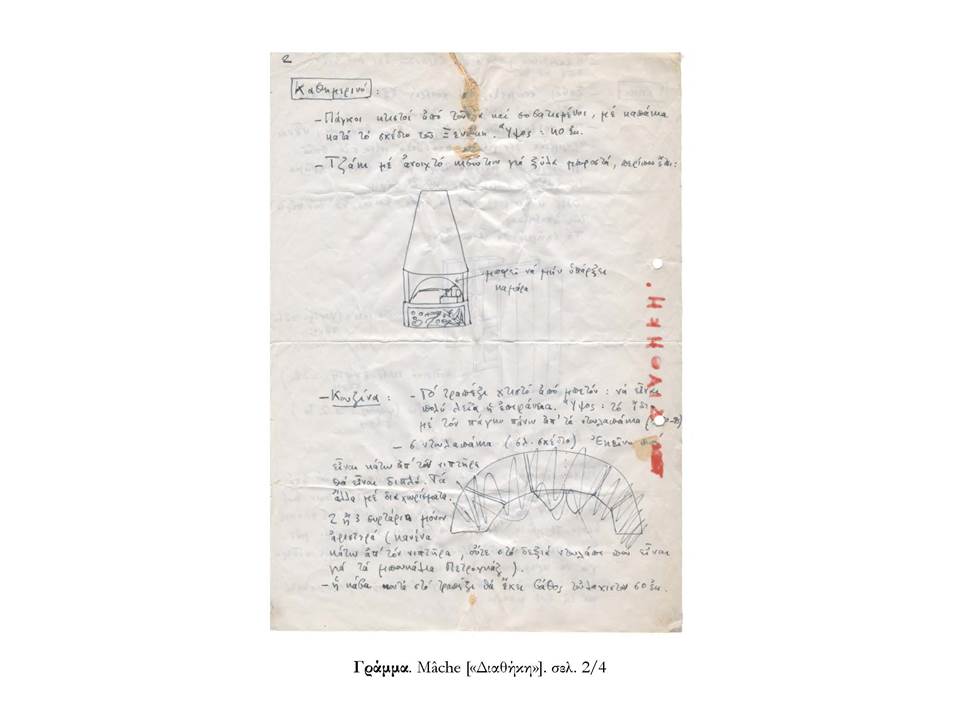 2
Καθημερινό :
– Πάγκοι κτιστοί ἀπό τοῦβλα καί σοβατισμένοι, μέ καπάκια
κατά τό σκέδιο τοῦ Ξενάκη. Ὕψος : 40 ἑκ.
– Τζάκι μέ ἀνοιχτό γιά ξύλα μπροστά, περίπου ἔτσι :
μπορεῖ νά μήν ὑπάρξει
καμάρα
– Κουζίνα : – Τό τραπέζι χτιστό ἀπό μπετόν : νά εἶναι
πολύ λεία ἡ ἐπιφάνεια. Ὕψος : τό ἴδιο
μέ τόν πάγκο πάνω ἀπ' τά ντουλαπάκια
– 6 ντουλαπάκια (βλ. σκέδιο) Ἐκεῖνο πού
εἶναι κάτω ἀπ' τόν νιπτῆρα
θά εἶναι διπλό. Τά
ἄλλα μέ διαχωρίσματα.
2 ἤ 3 συρτάρια μόνον
ἀριστερά (κανένα
κάτω ἀπ' τόν νιπτῆρα, οὔτε στό δεξιά ντουλάπι πού εἶναι
γιά τά μπουκάλια Πετρογκάζ).
– ἡ κάβα κοντά στό τραπέζι θά ἔχει βάθος τοὐλάχιστον 60 ἑκ.
ΔΙΑΘΗΚΗ.
Γράμμα. Mâche [«Διαθήκη»]. σελ. 2/4